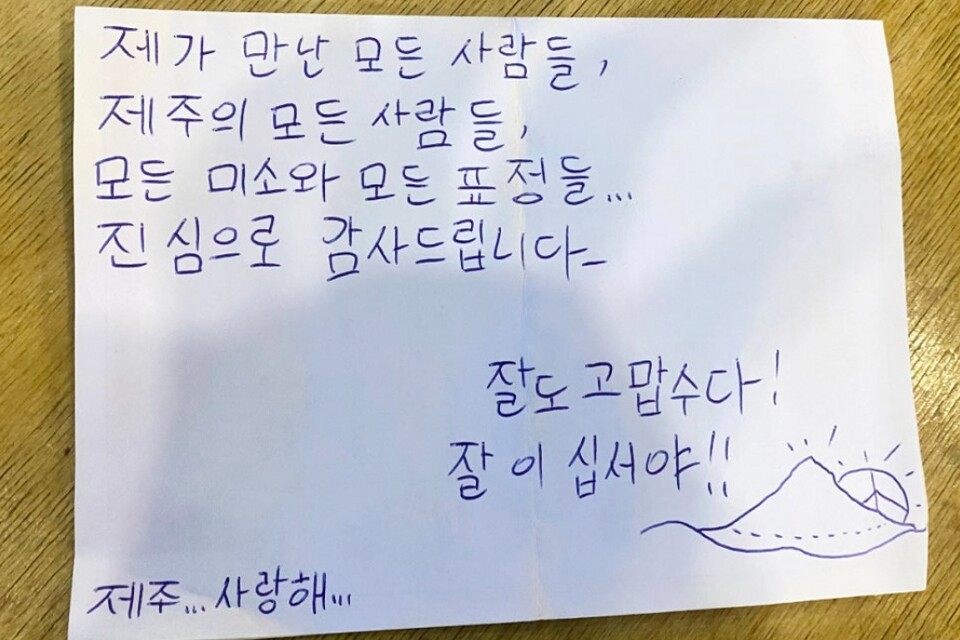 제가 만난 모든 사람들,
제주의 모든 사람들,
모든 미소와 모든 표정들...
진심으로 감사드립니다_
잘도 고맙수다!
잘 이십서야!!
제주... 사랑해...